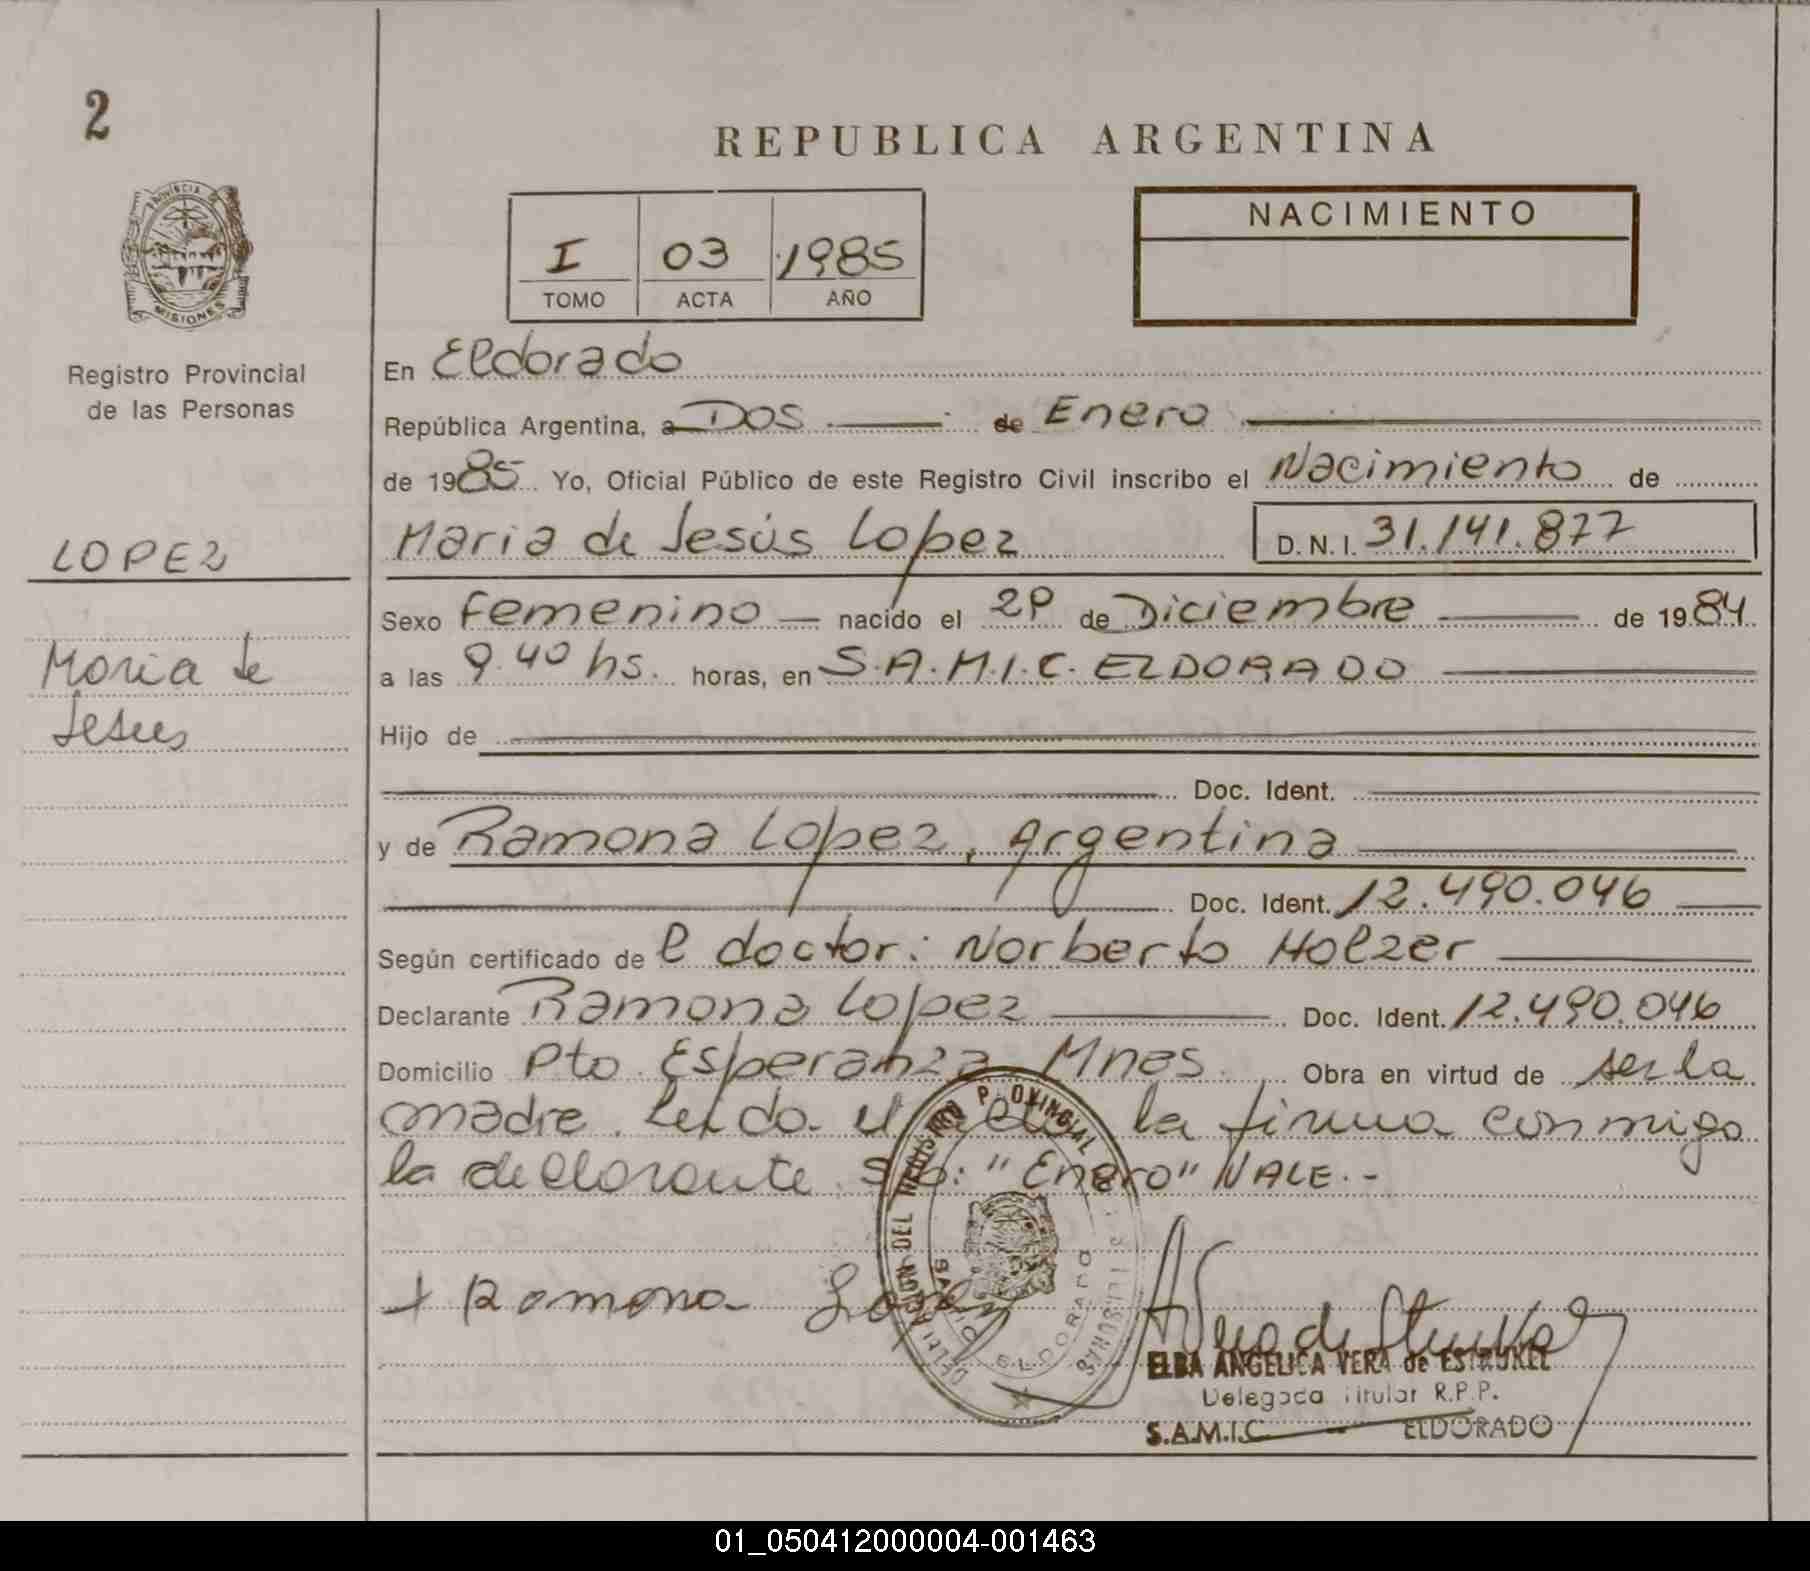 2
REPUBLICA ARGENTINA
PROVINCIA DE
MISIONES
Registro Provincial
de las Personas
I 03 1985
TOMO ACTA AÑO
NACIMIENTO
En Eldorado
República Argentina, a Dos de Enero
de 1985 Yo, Oficial Público de este Registro Civil inscribo el Nacimiento de
LOPEZ
Maria de Jesús Lopez D.N.I. 31.141.877
Sexo Femenino nacido el 29 de Diciembre de 1984
Maria de
a las 9.40 hs. horas, en S.A.M.I.C. ELDORADO
Jesus
Hijo de
Doc. Ident.
y de Ramona Lopez, Argentina
Doc. Ident. 12.490.046
Según certificado de l doctor: Norberto Holzer
Declarante Ramona Lopez Doc. Ident. 12.490.046
Domicilio Pto. Esperanza Mnes. Obra en virtud de ser la
madre. Leida el acta la firma conmigo
la declarante. S/b: "Enero" VALE.-
DELEGACION DEL REGISTRO PROVINCIAL
ELDORADO
MISIONES
+ Ramona Lopez
ELBA ANGELICA VERA de ESTRUKEL
Delegada Titular R.P.P.
S.A.M.I.C. ELDORADO
01_050412000004-001463